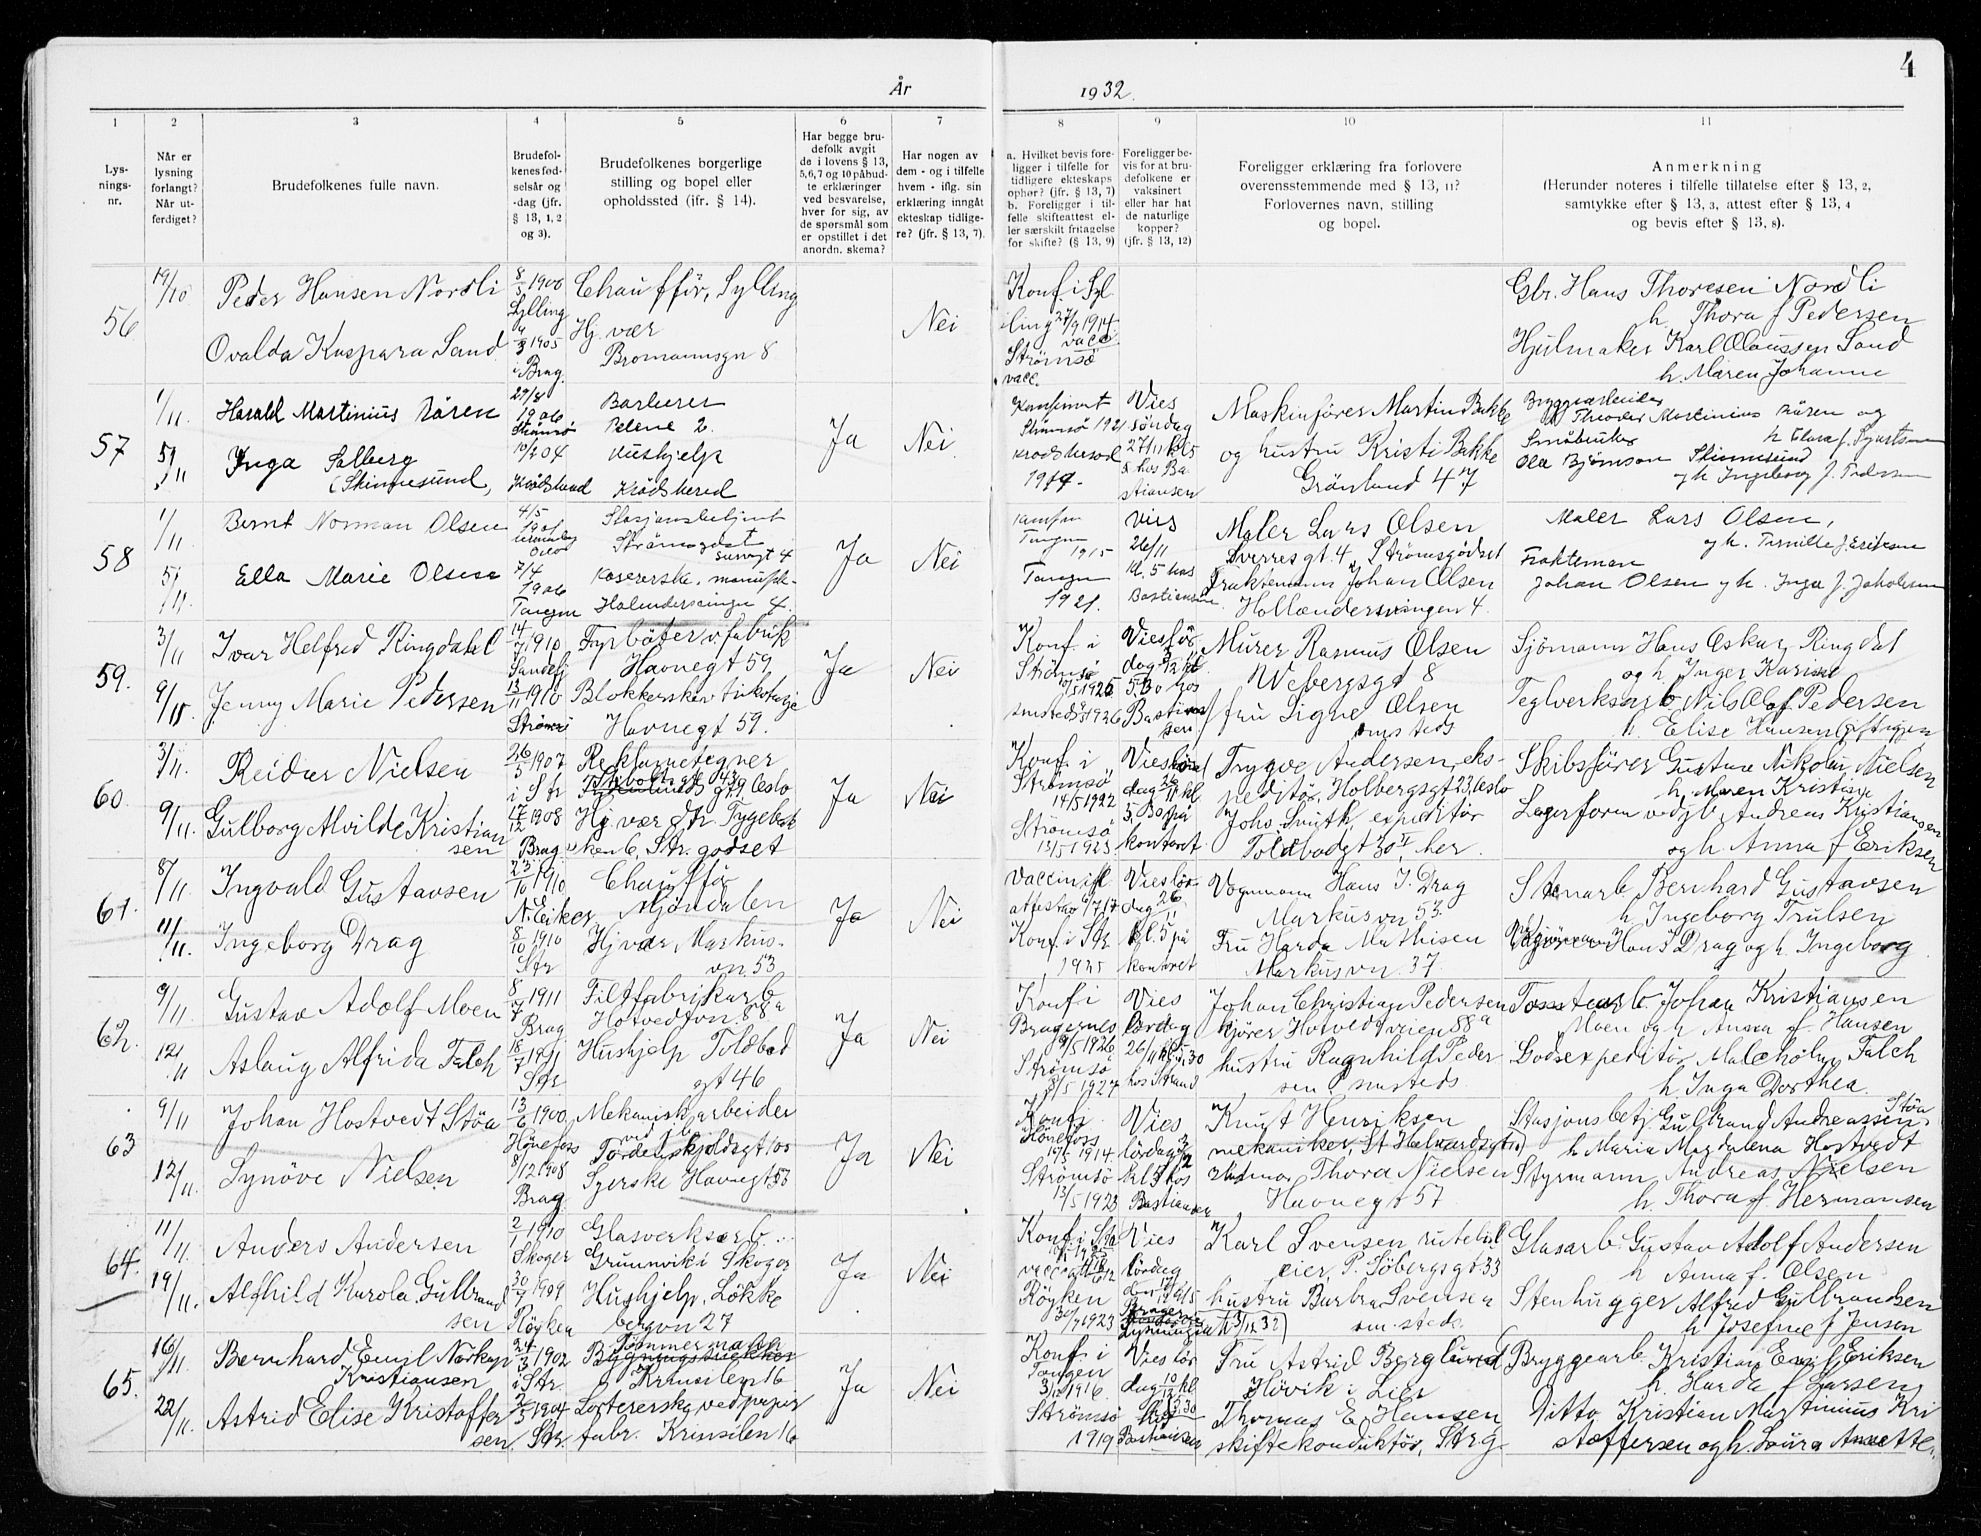 4
År 1932.
1
2
3
4
5
6
7
8
9
10
11
Lys-
nings-
nr.
Når er
lysning
forlangt?
Når ut-
ferdiget?
Brudefolkenes fulle navn.
Brudefol-
kenes fød-
selsår og
-dag (jfr.
§ 13, 1, 2
og 3).
Brudefolkenes borgerlige
stilling og bopel eller
opholdssted (ifr. § 14).
Har begge bru-
defolk avgit
de i lovens § 13,
5,6,7 og 10 påbud-
te erklæringer
ved besvarelse,
hver for sig, av
de spørsmål som
er opstillet i det
anordn. skema?
Har nogen av
dem - og i tilfelle
hvem - iflg. sin
erklæring inngått
ekteskap tidlige-
re? (jfr. § 13, 7).
a. Hvilket bevis fore-
ligger i tilfelle for
tidligere ekteskaps
ophør? (jfr. § 13, 7)
b. Foreligger i til-
felle skifteattest el-
ler særskilt fritagelse
for skifte? (§ 13, 9)
Foreligger be-
vis for at bru-
defolkene er
vaksinert
eller har hat
de naturlige
kopper?
(jfr. § 13, 12)
Foreligger erklæring fra forlovere
overensstemmende med § 13, 11?
Forlovernes navn, stilling
og bopel.
Anmerkning
(Herunder noteres i tilfelle tillatelse efter § 13, 2,
samtykke efter § 13, 3, attest efter § 13, 4
og bevis efter § 13, 8).
56
19/10
Peder Hansen Nordli
Ovalda Kaspara Sand
8/5 1900
Sylling
4/3 1905
i Brag.
Chauffør, Sylling
Hj. vær
Bromannsgn 8
Nei
Konf i Syl
ling 27/9 1914
vacc.
Strømsø
vacc.
Gbr. Hans Thoresen Nordli
h. Thora f Pedersen
Hjulmaker Karl Olaussen Sand
h. Maren Johanne
57
1/11
5/11
Harald Martinius Såren
Inga Solberg
(Skinnesund,
29/8
1906
Strømsø
10/2 04
Krødsherad
Barberer
Pelene 2.
Hushjelp
Krødsherad
Ja
Nei
Konfirmert
Strømsø 1921
Krødsherad
1919.
Vies
søndag
27/11 kl 5
hos Ba
stiansen
Maskinfører Martin Bakke
og hustru Kristi Bakke
Grønland 47
Bryggearbeider
Theodor Martinius Såren og
h Clara f.
Småbruker
Ola Bjørnson Skinnesund
og h Ingeborg f. Pedersen
58
1/11
5/11
Bernt Norman Olsen
Ella Marie Olsen
4/5
1901
Oslo
7/4
1906
Tangen
Stasjonsbetjent
Strømsgodset
Sverresgt 4
Kasererske,
Holendersvingen 4.
Ja
Nei
Konfirm
Tangen
1915
Tangen
1921.
Vies
26/11
kl. 5 hos
Bastiansen
Maler Lars Olsen
Sverresgt. 4, Strømsgodset
Fraktemann Johan Olsen
Hollendersvingen 4.
Maler Lars Olsen,
og h. Pernille f. Eriksen
Frakteman
Johan Olsen og h. Inga f. Jakobsen
59.
3/11
9/11
Ivar Helfred Ringdahl
Jenny Marie Pedersen
14/7 1910
Sandefj
13/11 1910
Strømsø
Fyrbøter v fabrik
Havnegt 59.
Blokkerske v
Havnegt 59.
Ja
Nei
Konf. i
Strømsø
1925
smsteds 1926
Vies lør
dag 3/12 kl
5.30 hos
Bastian
sen
Murer Rasmus Olsen
Webergsgt 8
fru Signe Olsen
smsteds
Sjømann Hans Oskar Ringdal
og h Inger Karine
Teglverksarb Nils Olaf Pedersen
h. Elise Hansen
60.
3/11.
9/11.
Reidar Nielsen
Gulborg Alvilde Kristian
sen
26/5 1907
i Str
17/12 1908
Brag.
Reklametegner
gt 9 Oslo
Hj. vær
6, Str. godset
Ja
Nei
Konf. i
Strømsø
14/5 1922
Strømsø
13/5 1923
Vies lør
dag 26/11 kl.
5.30 på
kontoret
Trygve Andersen, eks-
peditør, Holbergsgt 23, Oslo
Johs. Smith, expeditør
Toldbodgt 30 II, her.
Skibsfører Gustav Nikolai Nielsen
h. Maren Kristine
Lagerform ved jb. Andreas Kristiansen
og h. Anna f Eriksen
61.
8/11.
11/11.
Ingvald Gustavsen
Ingeborg Drag
23/10 1910
N. Eiker
8/10 1910
Str
Chauffør
Mjøndalen
Hj vær, Markus-
vn. 53
Ja
Nei
Vaccinasj
attest 1917
Konf i Str
1925
Vies lør
dag 26/11
kl. 5 på
kontoret
Vognmann Hans I. Drag
Markusvn 53.
Fru Harda Mathisen
Markusvn. 37.
Stenarb. Bernhard Gustavsen
h. Ingeborg Trulsen
Hans I Drag og h. Ingeborg
62.
9/11.
12/11
Gustav Adolf Moen
Aslaug Alfrida Falch
8/7 1911
Brag.
18/7 1911
Str.
Filtfabrikarb
Hotvedtvn. 88a
Hushjelp Toldbod
gt 46
Ja
Nei
Konf i
Bragernes
9/5 1926
Strømsø
8/5 1927
Vies
lørdag
26/11 kl. 5.30
hos Strand
Johan Christian Pedersen
kjører Hotvedtveien 88a
hustru Ragnhild Peder
sen smsteds.
Tomtearb. Johan Kristiansen
Moen og h Anna f. Hansen
Godsexpeditør Malchølm Falch
h. Inga Dorthea
63
9/11
12/11.
Johan Hostvedt Støa
Synøve Nielsen
13/6 1900
Hønefoss
8/12 1908
Brag
Mekanisk arbeider
Tordenskjoldsgt 105
Syerske Havnegt 53
Ja
Nei
Konf i
Hønefoss
1914
Strømsø
13/5 1923
Vies
lørdag 3/12
kl 5 hos
Bastiansen
Knut Henriksen
mekaniker, St Halvardsgt
Thora Nielsen
Havnegt 57
Stasjonsbetj. Gulbrand Andreassen Støa
h Maria Magdalena Hostvedt
Styrmann Andreas Nielsen
h. Thora f. Hermansen
64.
11/11.
19/11.
Anders Andersen
Alfhild Karola Gulbrand
sen
2/1 1910
Skoger
30/7 1909
Røyken
Glasverksarb...
Grunnvik i Skoger
Hushjelp, Løkke
bergvn 27
Ja
Nei
Konf. i Str
Røyken
1923
Vies
lørdag
Karl Svensen rutebil
eier, P. Søbergsgt 33
hustru Barbra Svensen
sm. steds.
Glasarb. Gustav Adolf Andersen
h Anna f. Olsen
Stenhugger Alfred Gulbrandsen
h Josefine f Jensen
65.
16/11.
22/11.
Bernhard Emil Norkyn
Kristiansen
Astrid Elise Kristoffer
sen
24/3 1902
i Str.
1904
Str.
Tømmermann
Krinsilen 16
Sortererske ved papir
fabr. Krinsilen 16
Ja
Nei
Konf. i
Tangen
1916.
Strømsø
1919
Vies lør
dag 10/12 kl
5.30
hos
Bastiansen
Fru Astrid Berglund
Høvik i Lier
Thomas E. Hansen
skiftekonduktør, Strg.
Bryggearb. Kristian Emil Eriksen
h. Harda f Larsen
Ditto Kristian Martinius Kri
stoffersen og h. Laura Anette.